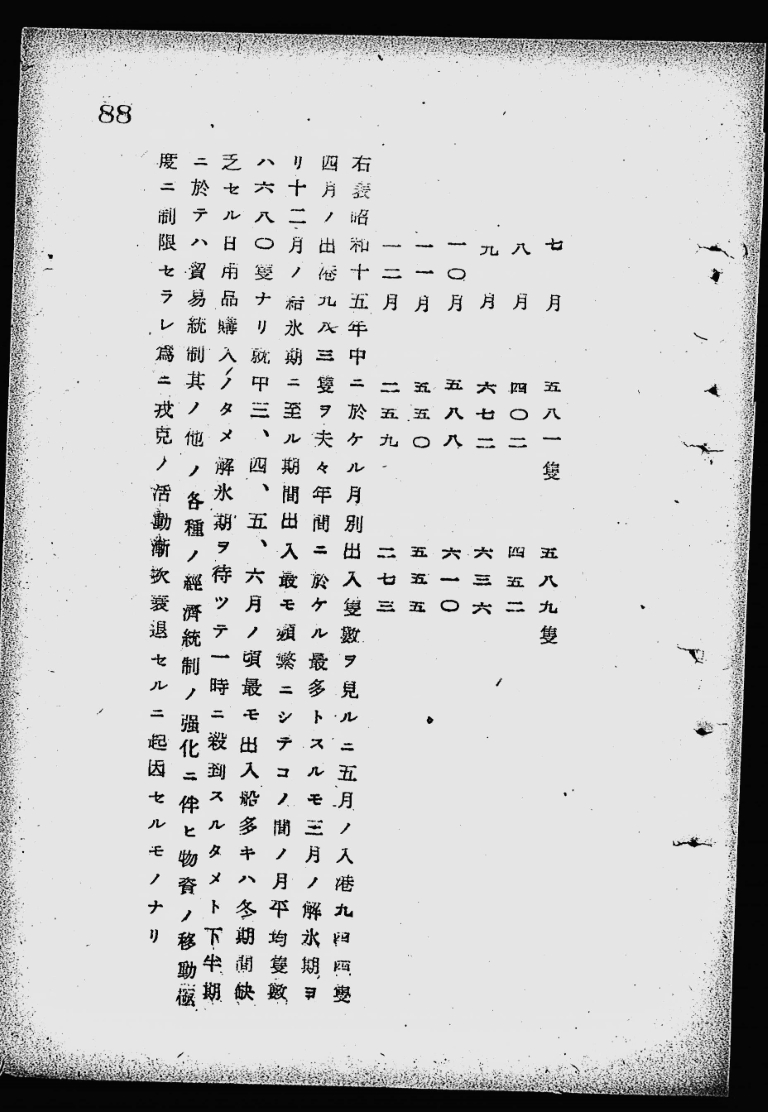 88
七月 五八一隻 五八九隻
八月 四〇二 四五二
九月 六七二 六三六
一〇月 五八八 六一〇
一一月 五五〇 五五五
一二月 二五九 二七三
右表昭和十五年中ニ於ケル月別出入隻數ヲ見ルニ五月ノ入港九四四隻
四月ノ出港九八三隻ヲ夫々年間ニ於ケル最多トスルモ三月ノ解氷期ヨ
リ十二月ノ結氷期ニ至ル期間出入最モ頻繁ニシテコノ間ノ月平均隻數
ハ六八〇隻ナリ就中三、四、五、六月ノ頃最モ出入船多キハ冬期間缺
乏セル日用品購入ノタメ解氷期ヲ待ツテ一時ニ殺到スルタメト下半期
ニ於テハ貿易統制其ノ他ノ各種ノ經濟統制ノ强化ニ伴ヒ物資ノ移動極
度ニ制限セラレ爲ニ戎克ノ活動漸次衰退セルニ起因セルモノナリ